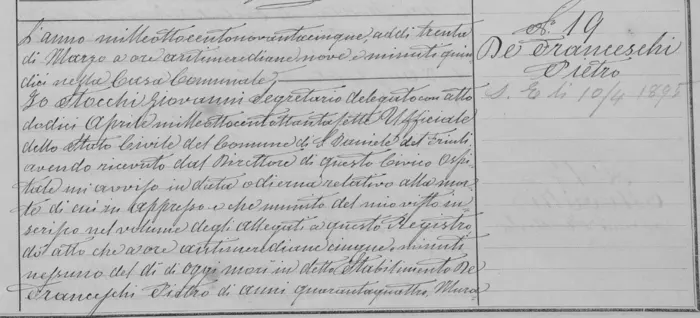 L'anno milleottocentonovantacinque, addì trenta
di Marzo a ore antimeridiane nove e minuti quin
dici nella Casa Comunale,
Io Stocchi Giovanni Segretario delegato con atto
dodici Aprile milleottocentottantasette Uffiziale
dello Stato Civile del Comune di S. Daniele del Friuli
avendo ricevuto dal Direttore di questo Civico Ospi
tale un avviso in data odierna relativo alla mor
te di cui in appresso e che munito del mio visto in
serisco nel volume degli allegati a questo Registro
do atto che a ore antimeridiane cinque, minuti
nessuno del dì di oggi morì in detto Stabilimento De
Franceschi Pietro di anni quarantaquattro, Mura
N. 19
De Franceschi
Pietro
S. E. li 10/4 1895